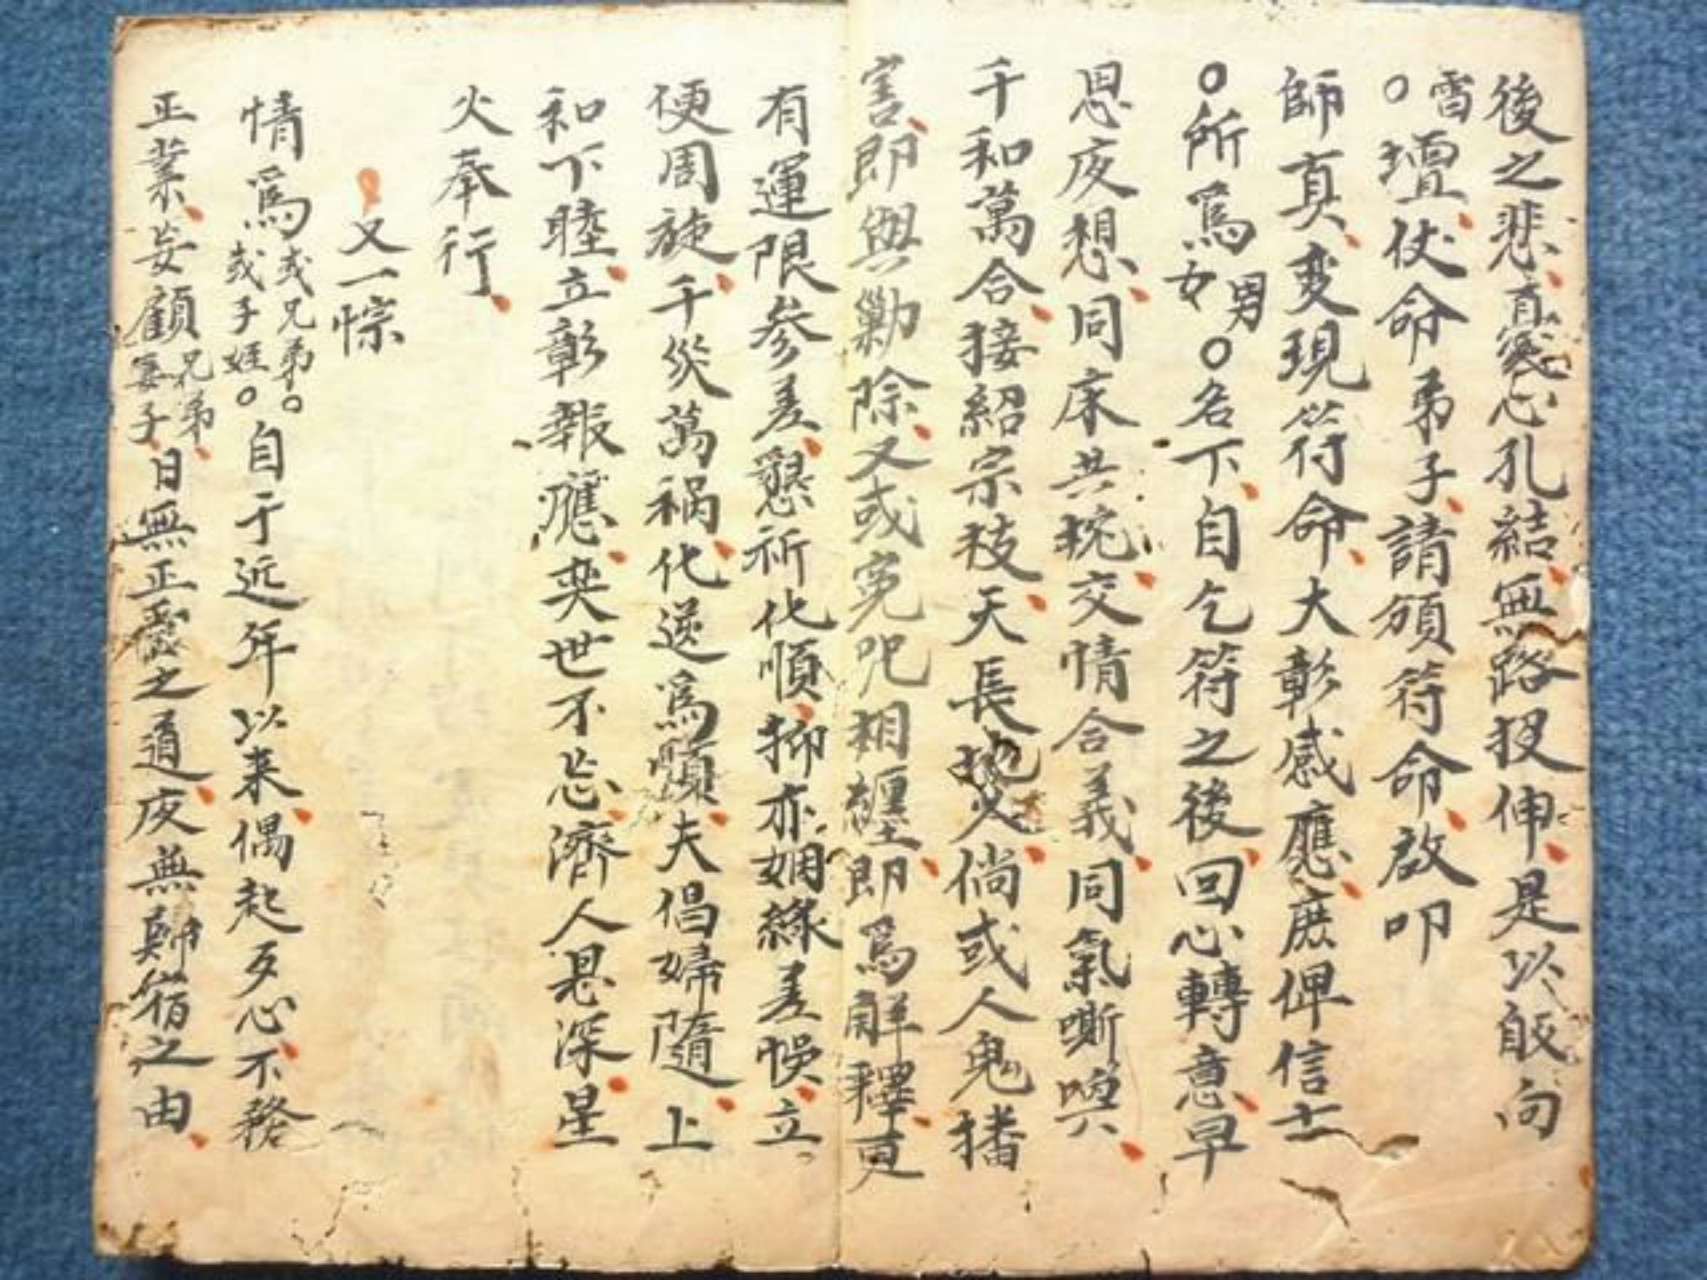 後之悲真寒心孔結無路投伸是以皈向
○雷壇仗命弟子請頒符命啟叩
師真変現符命大彰感應庶俾信士
○所爲男女○名下自乞符之後回心轉意早
思夜想同床共枕交情合義同氣嘶噢
千和萬合接紹宗枝天長地久倘或人鬼播
害即與勦除又或寃咒相纏即爲解釋更
有運限参差懇祈化順抑亦姻緣差悞立
便周旋千災萬祸化逆爲順夫倡婦隨上
和下睦立彰報應奕世不忘濟人恩深星
火奉行
又一悰
情爲或兄弟○或子姪○自于近年以来偶起歹心不務
正業妄顧兄弟妻子日無正㪯之道夜無歸宿之由